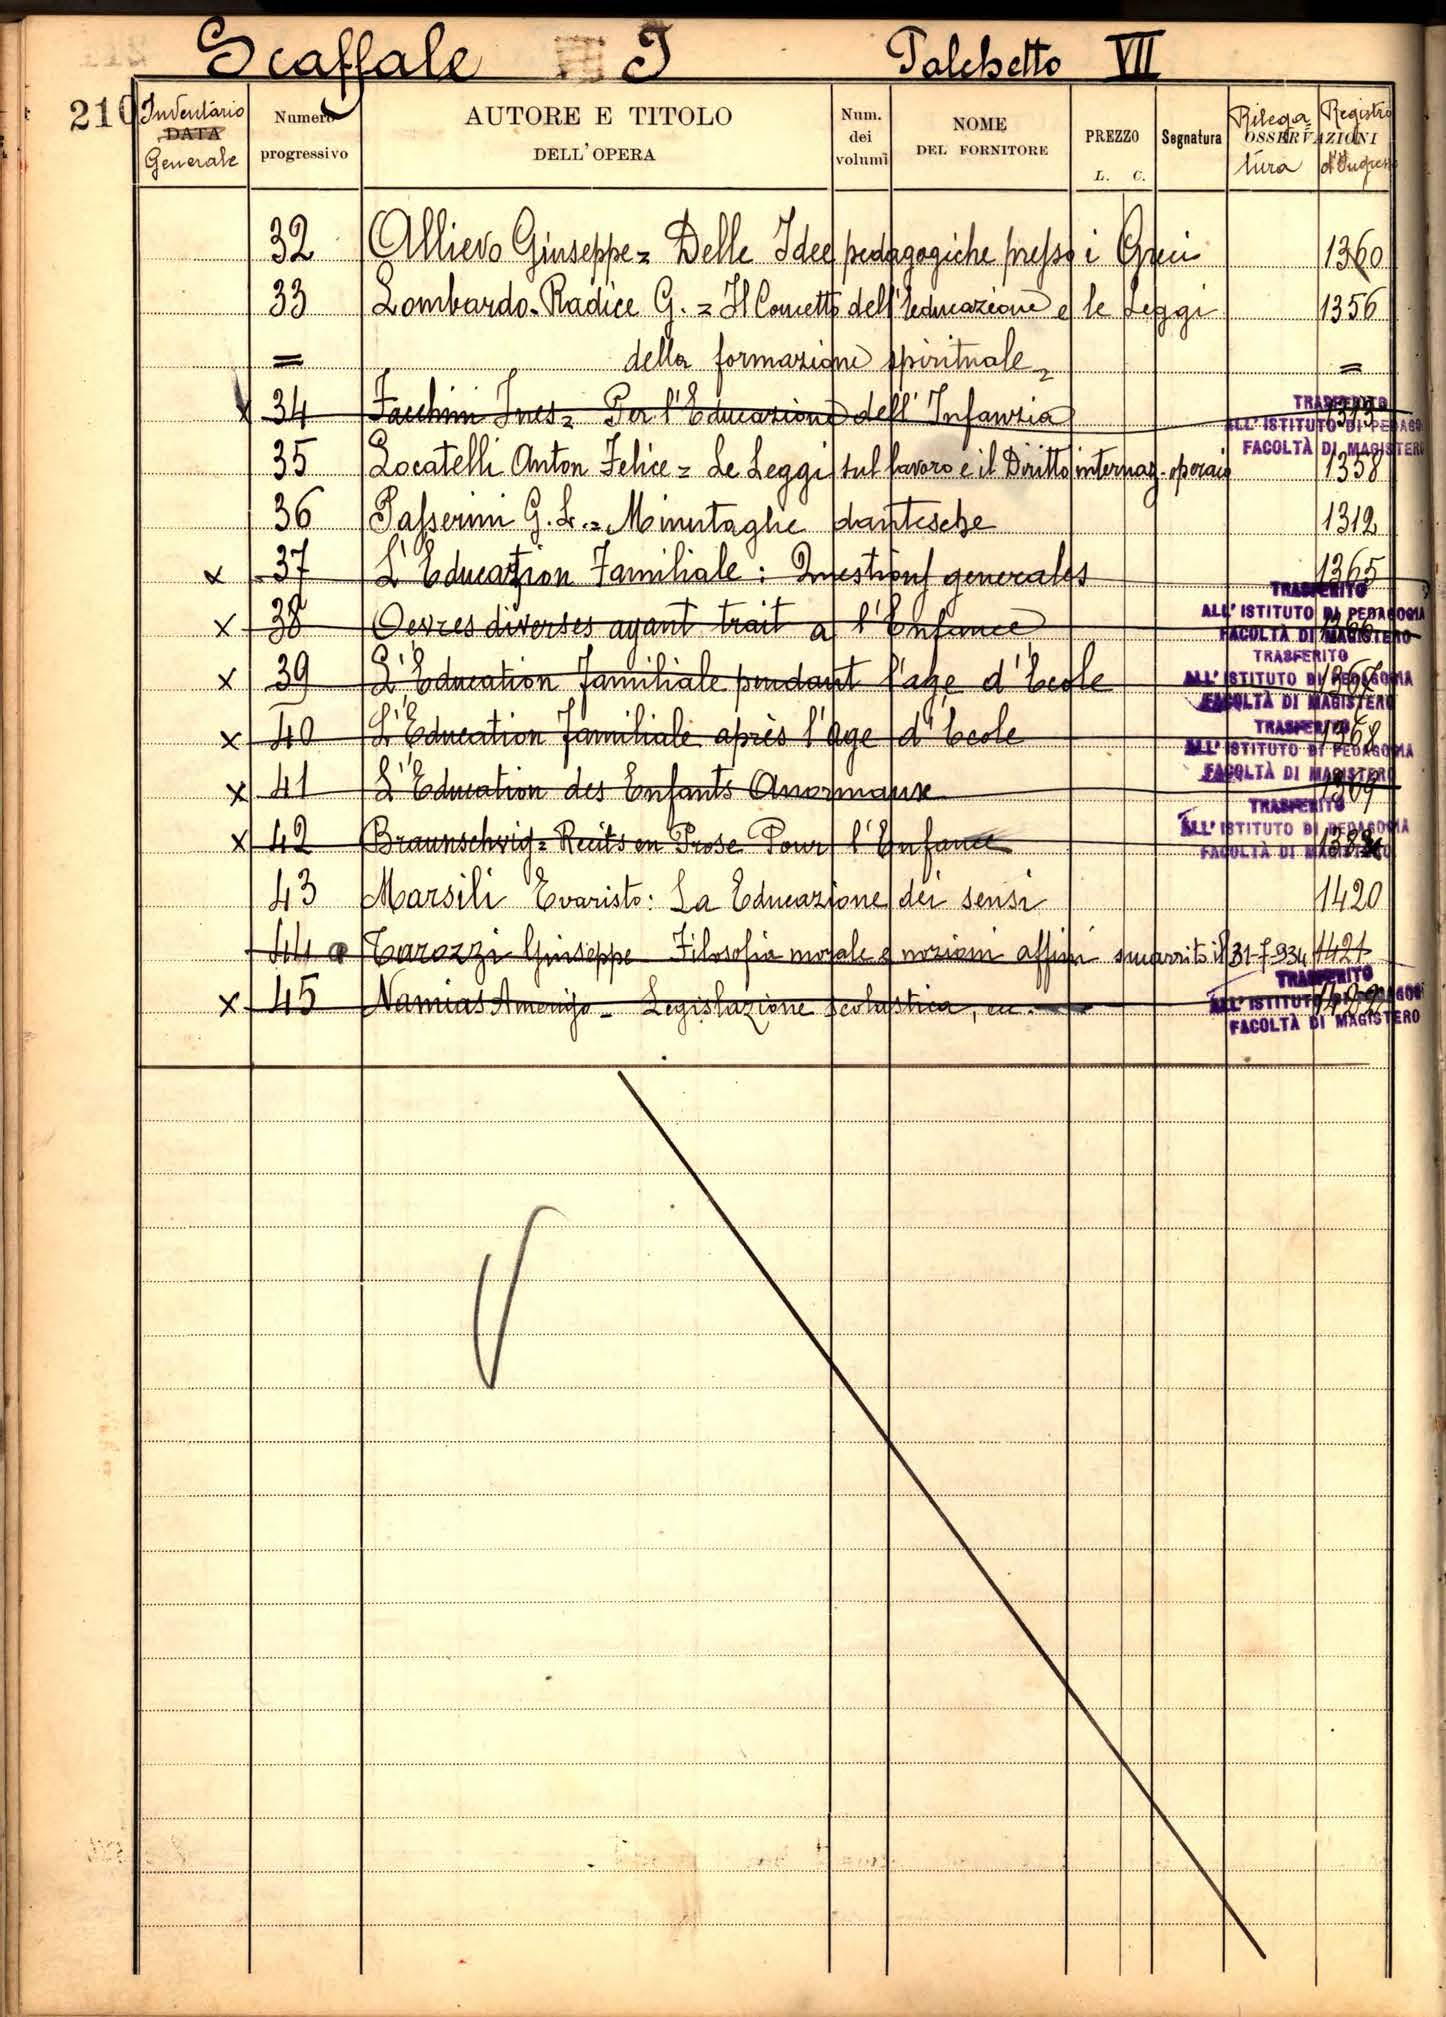 Scaffale I Palchetto VII
210
Inventario DATA Generale
Numero progressivo
AUTORE E TITOLO DELL'OPERA
Num. dei volumi
NOME DEL FORNITORE
PREZZO L. C.
Segnatura
OSSERVAZIONI
Rilegatura
Registro d'Ingresso
32 Allievo Giuseppe = Delle Idee pedagogiche presso i Greci 1360
33 Lombardo-Radice G. = Il Concetto dell'educazione e le Leggi 1356
= della formazione spirituale =
x 34 Facchini Ines = Per l'Educazione dell'Infanzia
TRASFERITO
ALL'ISTITUTO DI PEDAGO
FACOLTÀ DI MAGISTERO
35 Locatelli Anton Felice = Le Leggi sul lavoro e il Diritto internaz. operaio 1358
36 Passerini G. L. = Minutaglie dantesche 1312
x 37 L'Education Familiale : Questions generales 1365
TRASFERITO
ALL'ISTITUTO DI PEDAGOGIA
FACOLTÀ DI MAGISTERO
x 38 Oevres diverses ayant trait a l'Enfance
TRASFERITO
ALL'ISTITUTO DI PEDAGOGIA
FACOLTÀ DI MAGISTERO
x 39 L'Education familiale pendant l'age d'Ecole 1367
TRASFERITO
ALL'ISTITUTO DI PEDAGOGIA
FACOLTÀ DI MAGISTERO
x 40 L'Education familiale après l'age d'Ecole 1368
x 41 L'Education des Enfants Anormaux 1369
TRASFERITO
ALL'ISTITUTO DI PEDAGOGIA
FACOLTÀ DI MAGISTERO
x 42 Braunschvig = Recits en Prose Pour l'Enfance
43 Marsili Evaristo : La Educazione dei sensi 1420
44 Tarozzi Giuseppe Filosofia morale e nozioni affini smarrito il 31-7-934 1421
x 45 Namias Amerigo - Legislazione scolastica, 1422
TRASFERITO
ALL'ISTITUTO DI PEDAGOGI
FACOLTÀ DI MAGISTERO